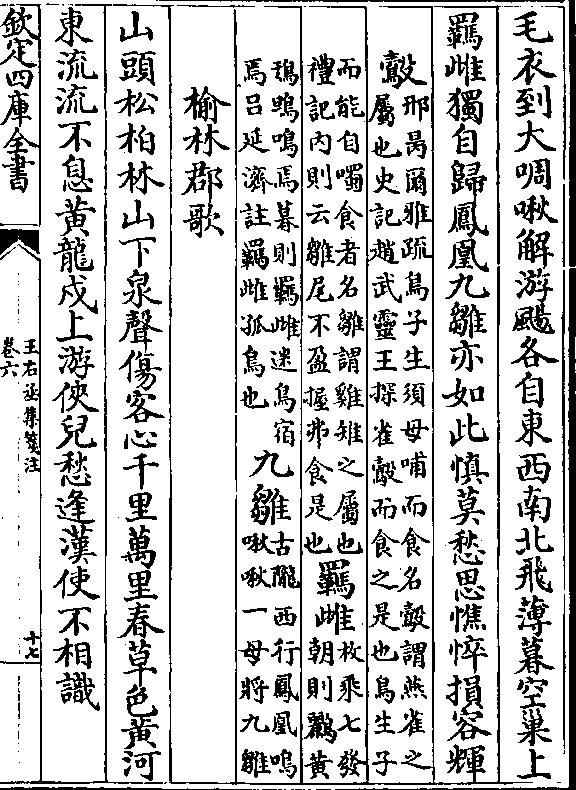 毛衣到大啁啾解游颺各自東西南北飛薄暮空巢上
羈雌獨自歸鳳凰九雛亦如此慎莫愁思憔悴損容輝
鷇
邢昺爾雅疏鳥子生須母哺而食名鷇謂燕雀之
屬也史記趙武靈王探雀鷇而食之是也鳥生子
而能自噣食者名雛謂雞雉之屬也
禮記内則云雛尾不盈握弗食是也
羈雌
枚乘七發
朝則鸝黄
鳱鴠鳴焉暮則羈雌迷鳥宿
焉吕延濟註羈雌孤鳥也
九雛
古隴西行鳳凰鳴
啾啾一母將九雛
榆林郡歌
山頭松柏林山下泉聲傷客心千里萬里春草色黄河
東流流不息黄龍戍上游俠兒愁逢漢使不相識
欽定四庫全書
王右丞集箋注
卷六
十七